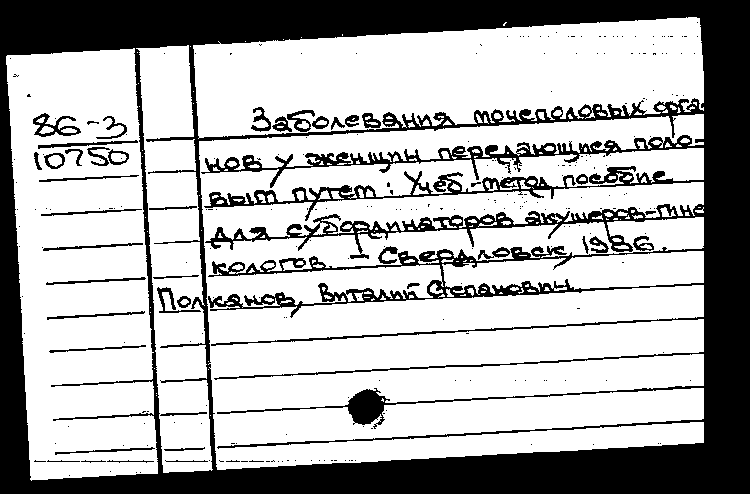 86-3
10750
Заболевания мочеполовых орга-
нов у женщин передающиеся поло-
вым путем: Учеб.-метод пособие
для субординаторов акушеров-гине
кологов. - Свердловск, 1986.
Полканов, Виталий Степанович.